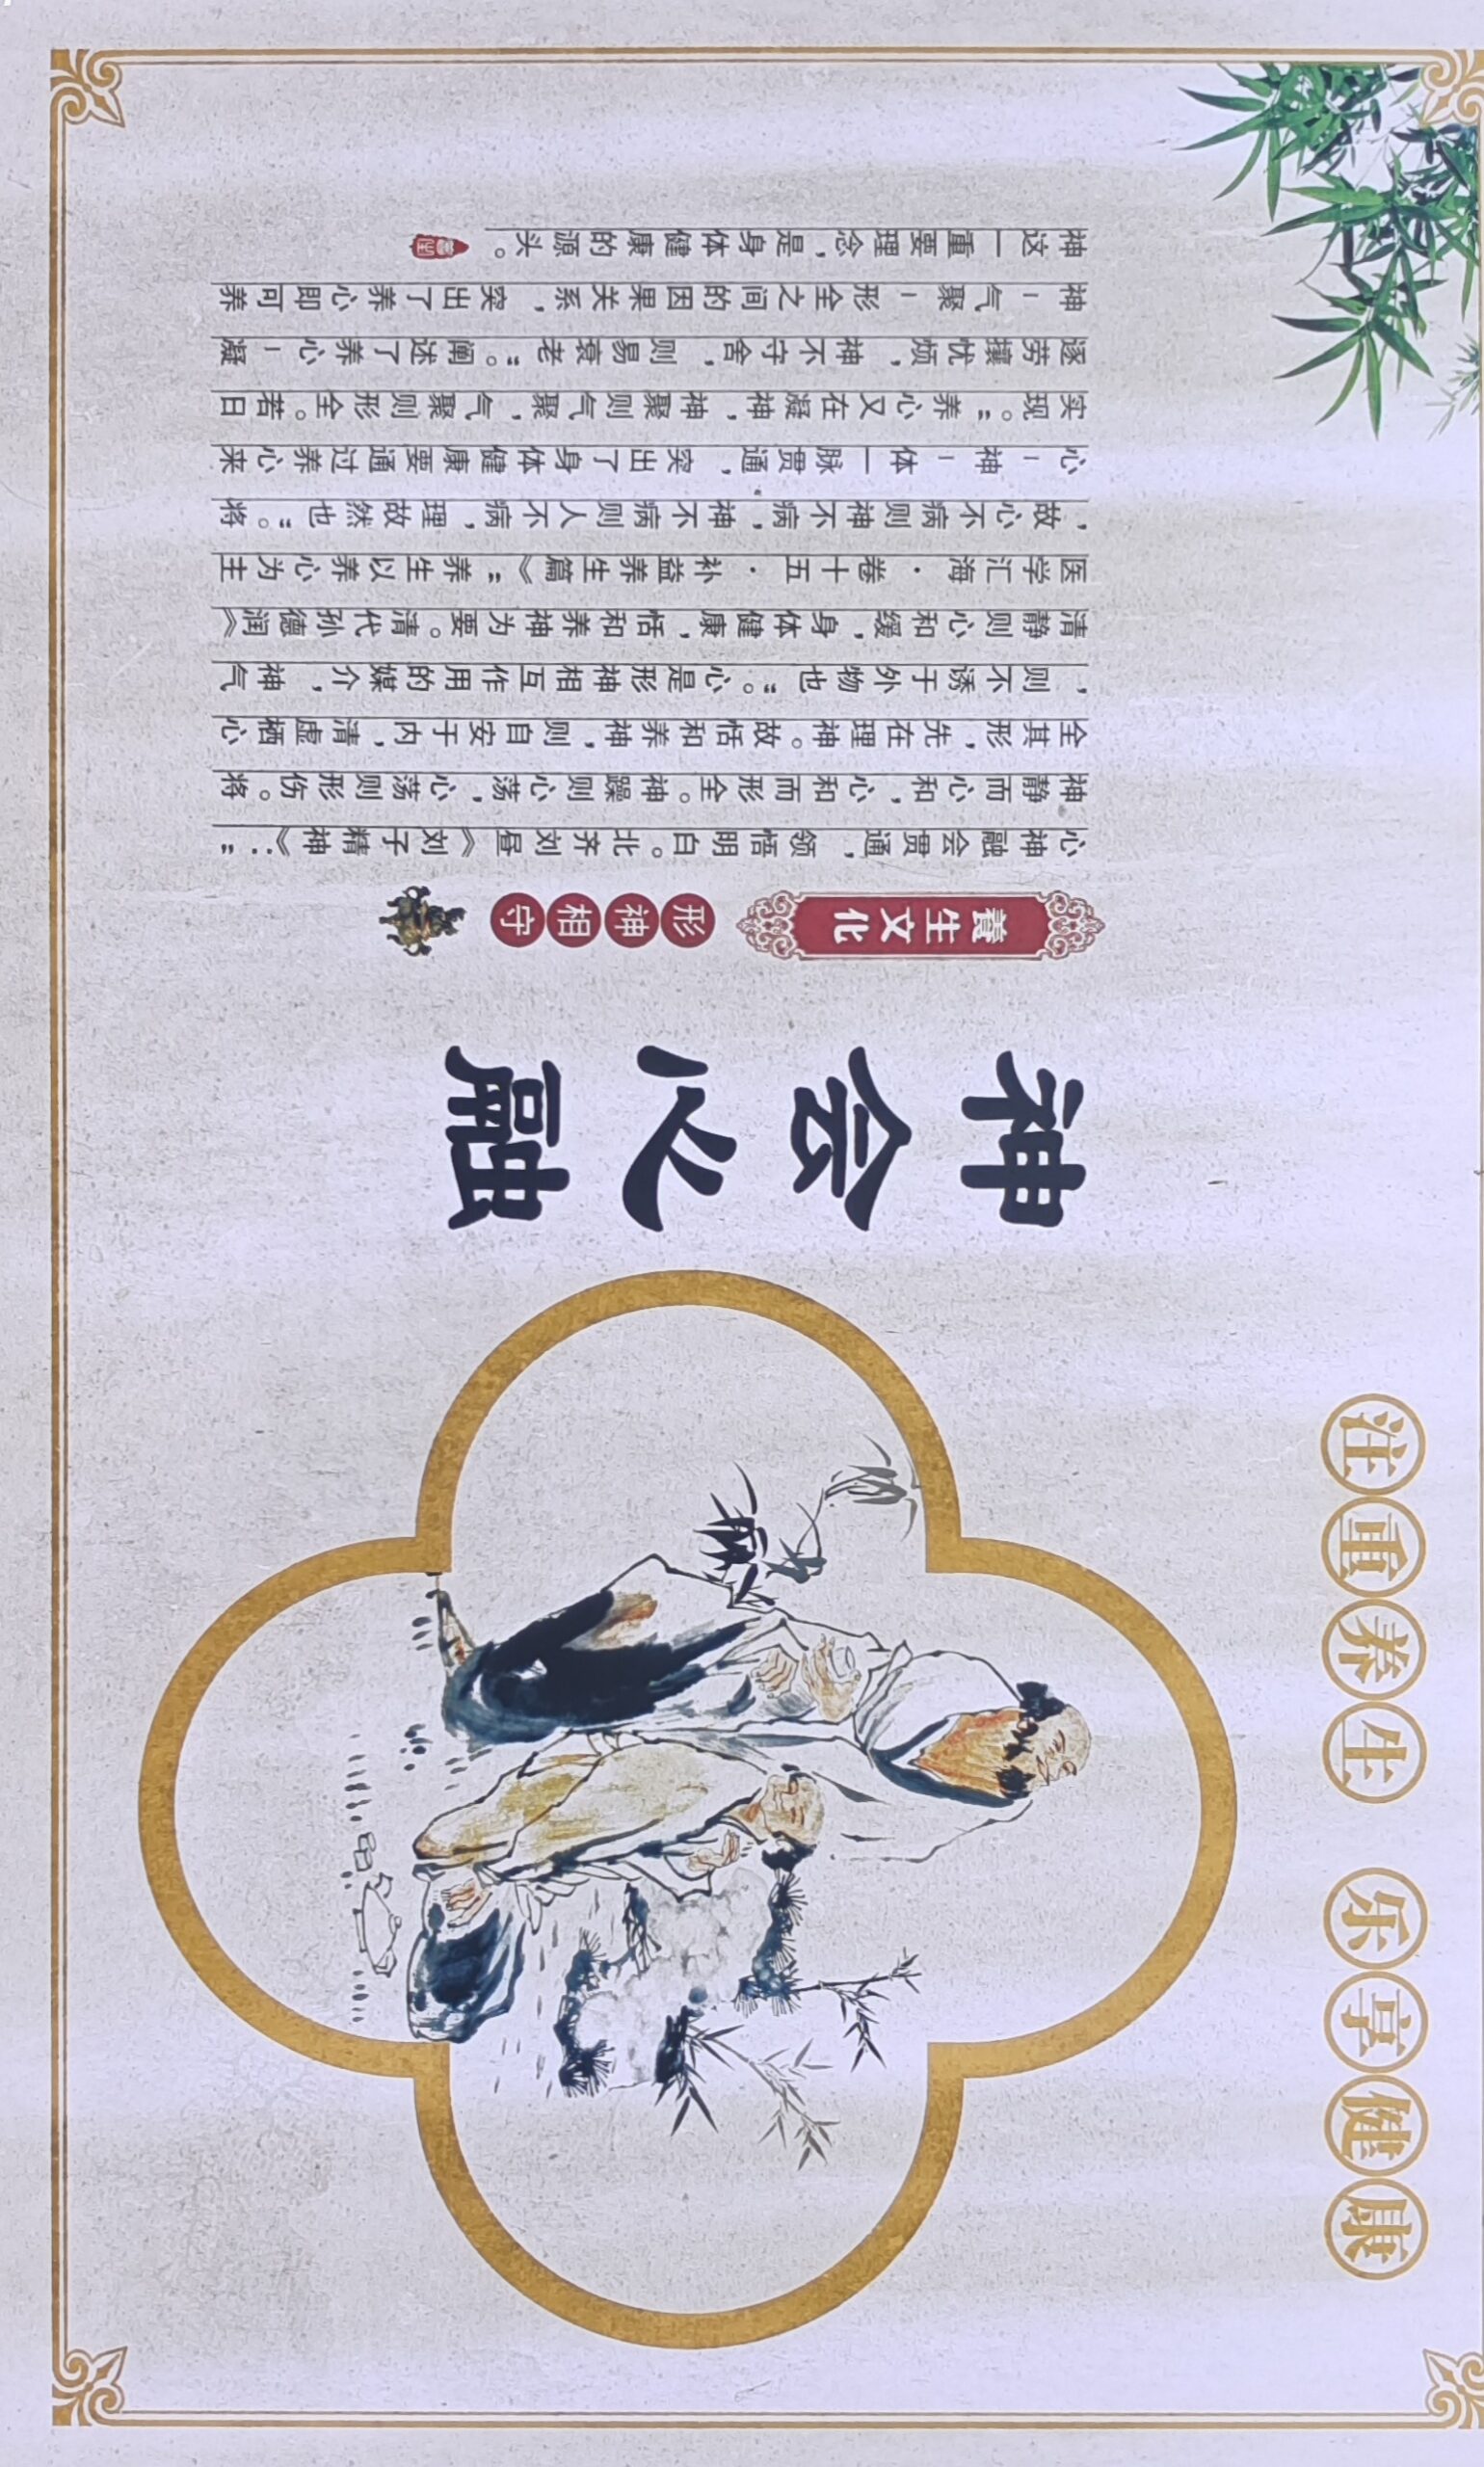 注重养生 乐享健康
神会心融
養生文化
形神相守
心神融会贯通，领悟明白。北齐刘昼《刘子精神》：“
神静而心和，心和而形全。神躁则心荡，心荡则形伤。将
全其形，先在理神。故恬和养神，则自安于内，清虚栖心
，则不诱于外物也”。心是形神相互作用的媒介，神气
清静则心和缓，身体健康，恬和养神为要。清代孙德润《
医学汇海·卷十五·补益养生篇》“养生以养心为主
，故心不病则神不病，神不病则人不病，理故然也”。将
心-神-体一脉贯通，突出了身体健康要通过养心来
实现。“养心又在凝神，神聚则气聚，气聚则形全。若日
逐劳攘忧烦，神不守舍，则易衰老”。阐述了养心-凝
神-气聚-形全之间的因果关系，突出了养心即可养
神这一重要理念，是身体健康的源头。